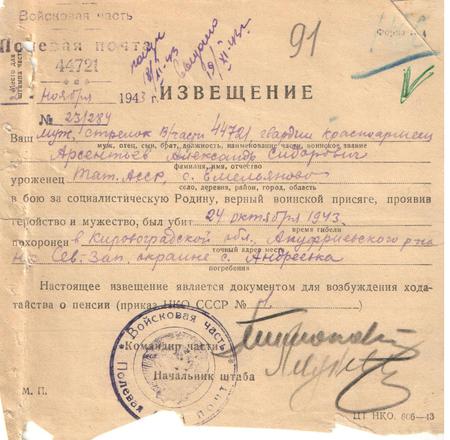 Войсковая часть
Полевая почта
44721
Место для штампа части
Форма № 4
91
ноября 1943 г.
ИЗВЕЩЕНИЕ
№ 23/284
Ваш муж, стрелок в/части 44721 гвардии красноармеец
муж, отец, сын, брат, должность, наименование части, воинское звание
Арсентьев Александр
фамилия, имя, отчество
уроженец Тат. АССР, с. Емельяново
село, деревня, район, город, область
в бою за социалистическую Родину, верный воинской присяге, проявив
геройство и мужество, был убит 24 октября 1943.
время гибели
похоронен в Кировоградской обл. Ануфриевского р-на
на Сев.-Зап. окраине с. Андреевка
точный адрес места
погребения
Настоящее извещение является документом для возбуждения хода-
тайства о пенсии (приказ НКО СССР №
Войсковая часть
Полевая почта
Командир части
Начальник штаба
М. П.
ЦТ НКО. 606—43